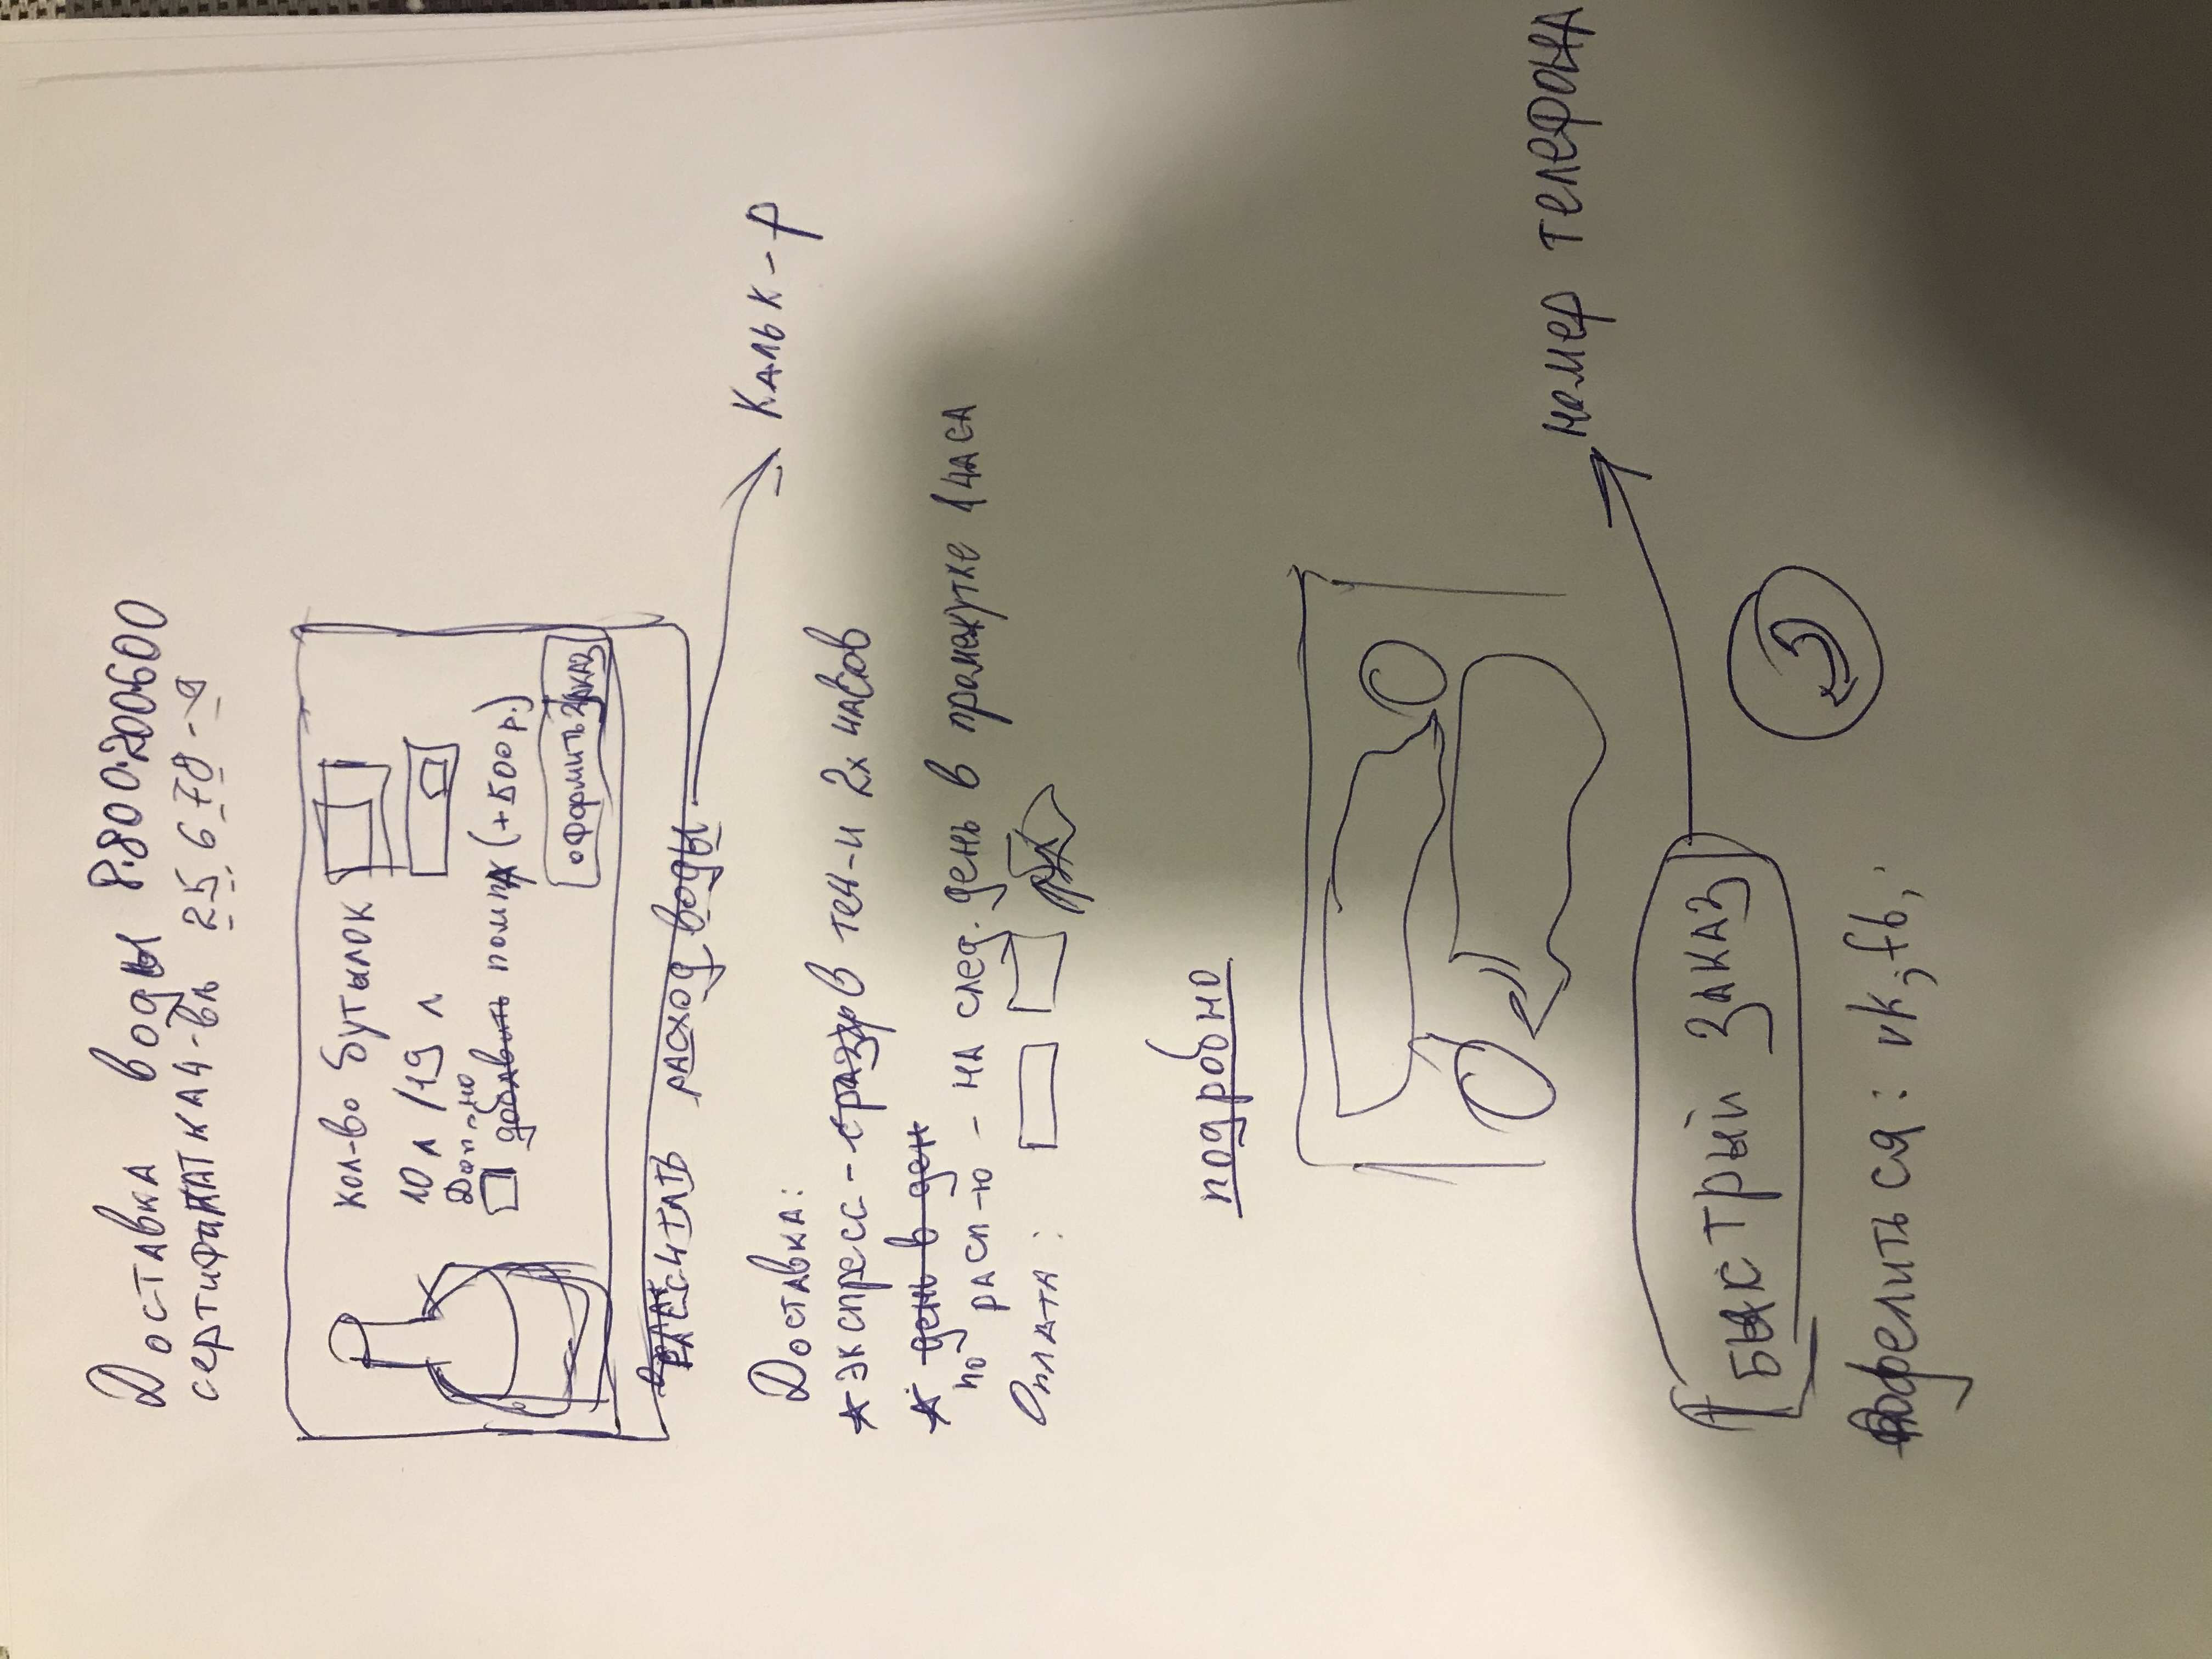 Доставка воды 8.800.200.600
сертификат кач-ва 25 678-9
кол-во бутылок
10 л /19 л
Доп-но
добавить помпа (+500 р.)
оформить заказ
рассчитать расход воды
Кальк-р
Доставка:
экспресс - сразу в теч-и 2х часов
день в ден
по расп-ю - на след. день в промежутке 1 часа
Оплата:
подробно
номер телефона
Быстрый заказ
Поделиться: vk, fb,